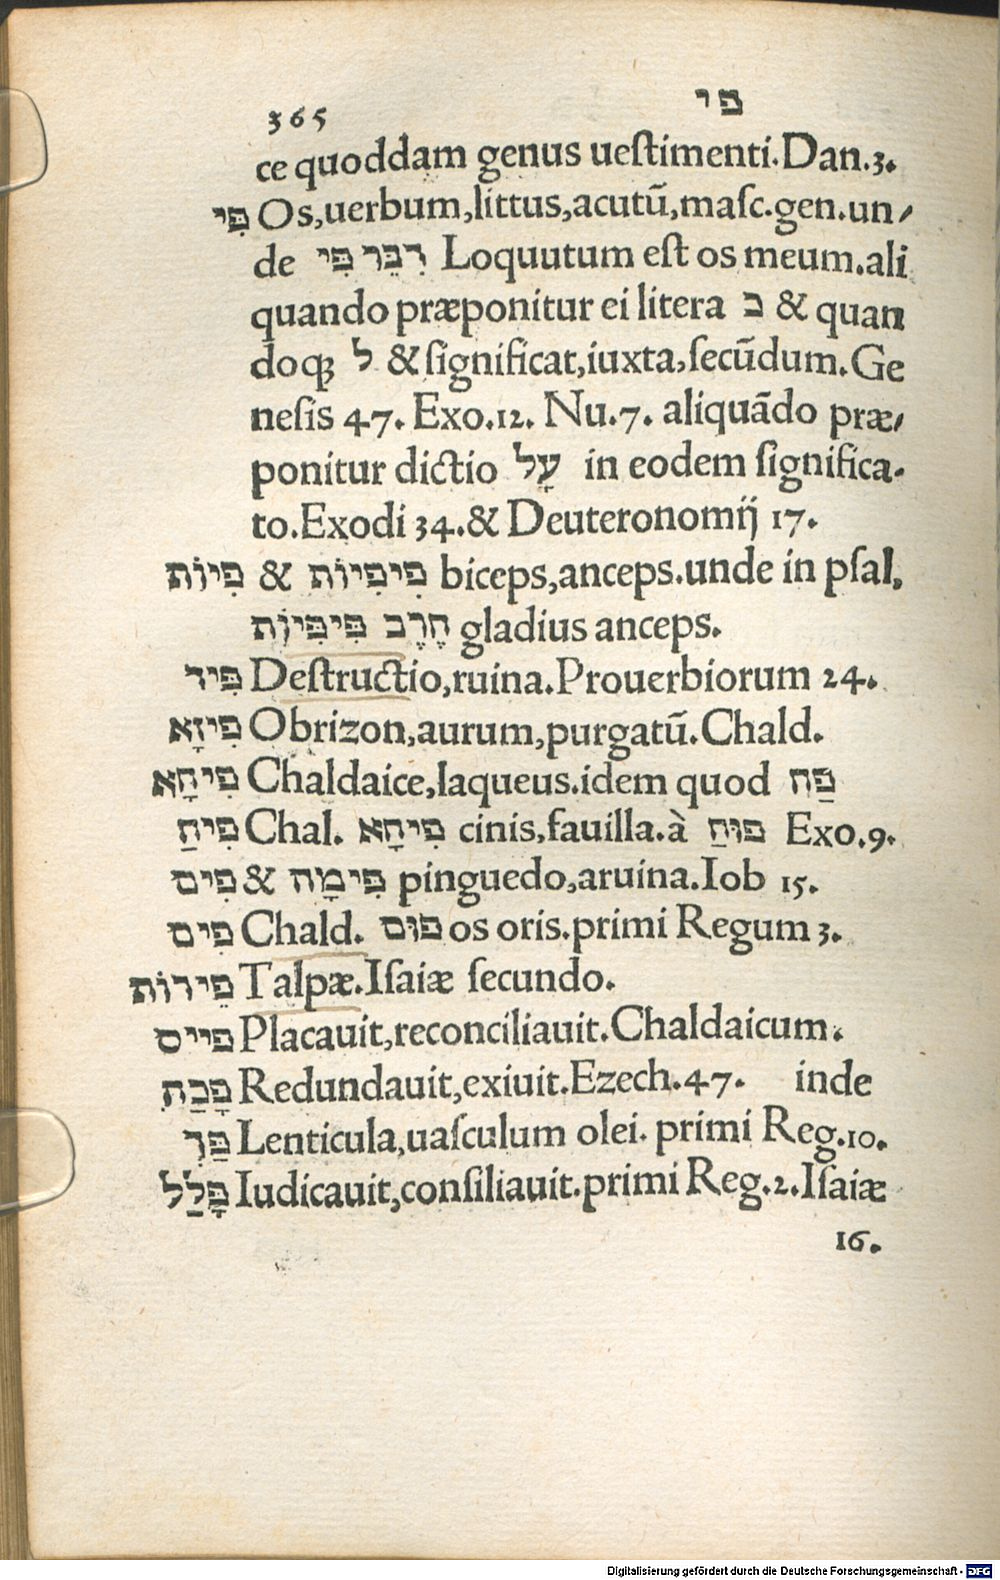 365 פי
ce quoddam genus ueſtimenti. Dan. 3.
פִּי Os, uerbum, littus, acutū, maſc. gen. un⸗
de דִבֵּר פִּי Loquutum eſt os meum. ali
quando præponitur ei litera כ & quan
doqꝫ ל & ſignificat, iuxta, ſecūdum. Ge
neſis 47. Exo. 12. Nu. 7. aliquādo præ⸗
ponitur dictio עָל in eodem ſignifica-
to. Exodi 34. & Deuteronomij 17.
פִיוֹת & פִיפִיוֹת biceps, anceps. unde in pſal,
חֶרֶב פִּיפִּיוֹת gladius anceps.
פִּיד Deſtructio, ruina. Prouerbiorum 24.
פִּיזָא Obrizon, aurum, purgatū. Chald.
פִּיחָא Chaldaice, laqueus. idem quod פַּח
פִּיחַ Chal. פִּיחָא cinis, fauilla. à פּוּחַ Exo. 9.
פִּים & פִּימָה pinguedo, aruina. Iob 15.
פִּים Chald. פּוּם os oris. primi Regum 3.
פֵּירוֹת Talpæ. Iſaiæ ſecundo.
פייס Placauit, reconciliauit. Chaldaicum.
פָּכַת Redundauit, exiuit. Ezech. 47. inde
פַּךְ Lenticula, uaſculum olei. primi Reg. 10.
פָּלַל Iudicauit, conſiliauit. primi Reg. 2. Iſaiæ
16.
Digitalisierung gefördert durch die Deutsche Forschungsgemeinschaft - DFG